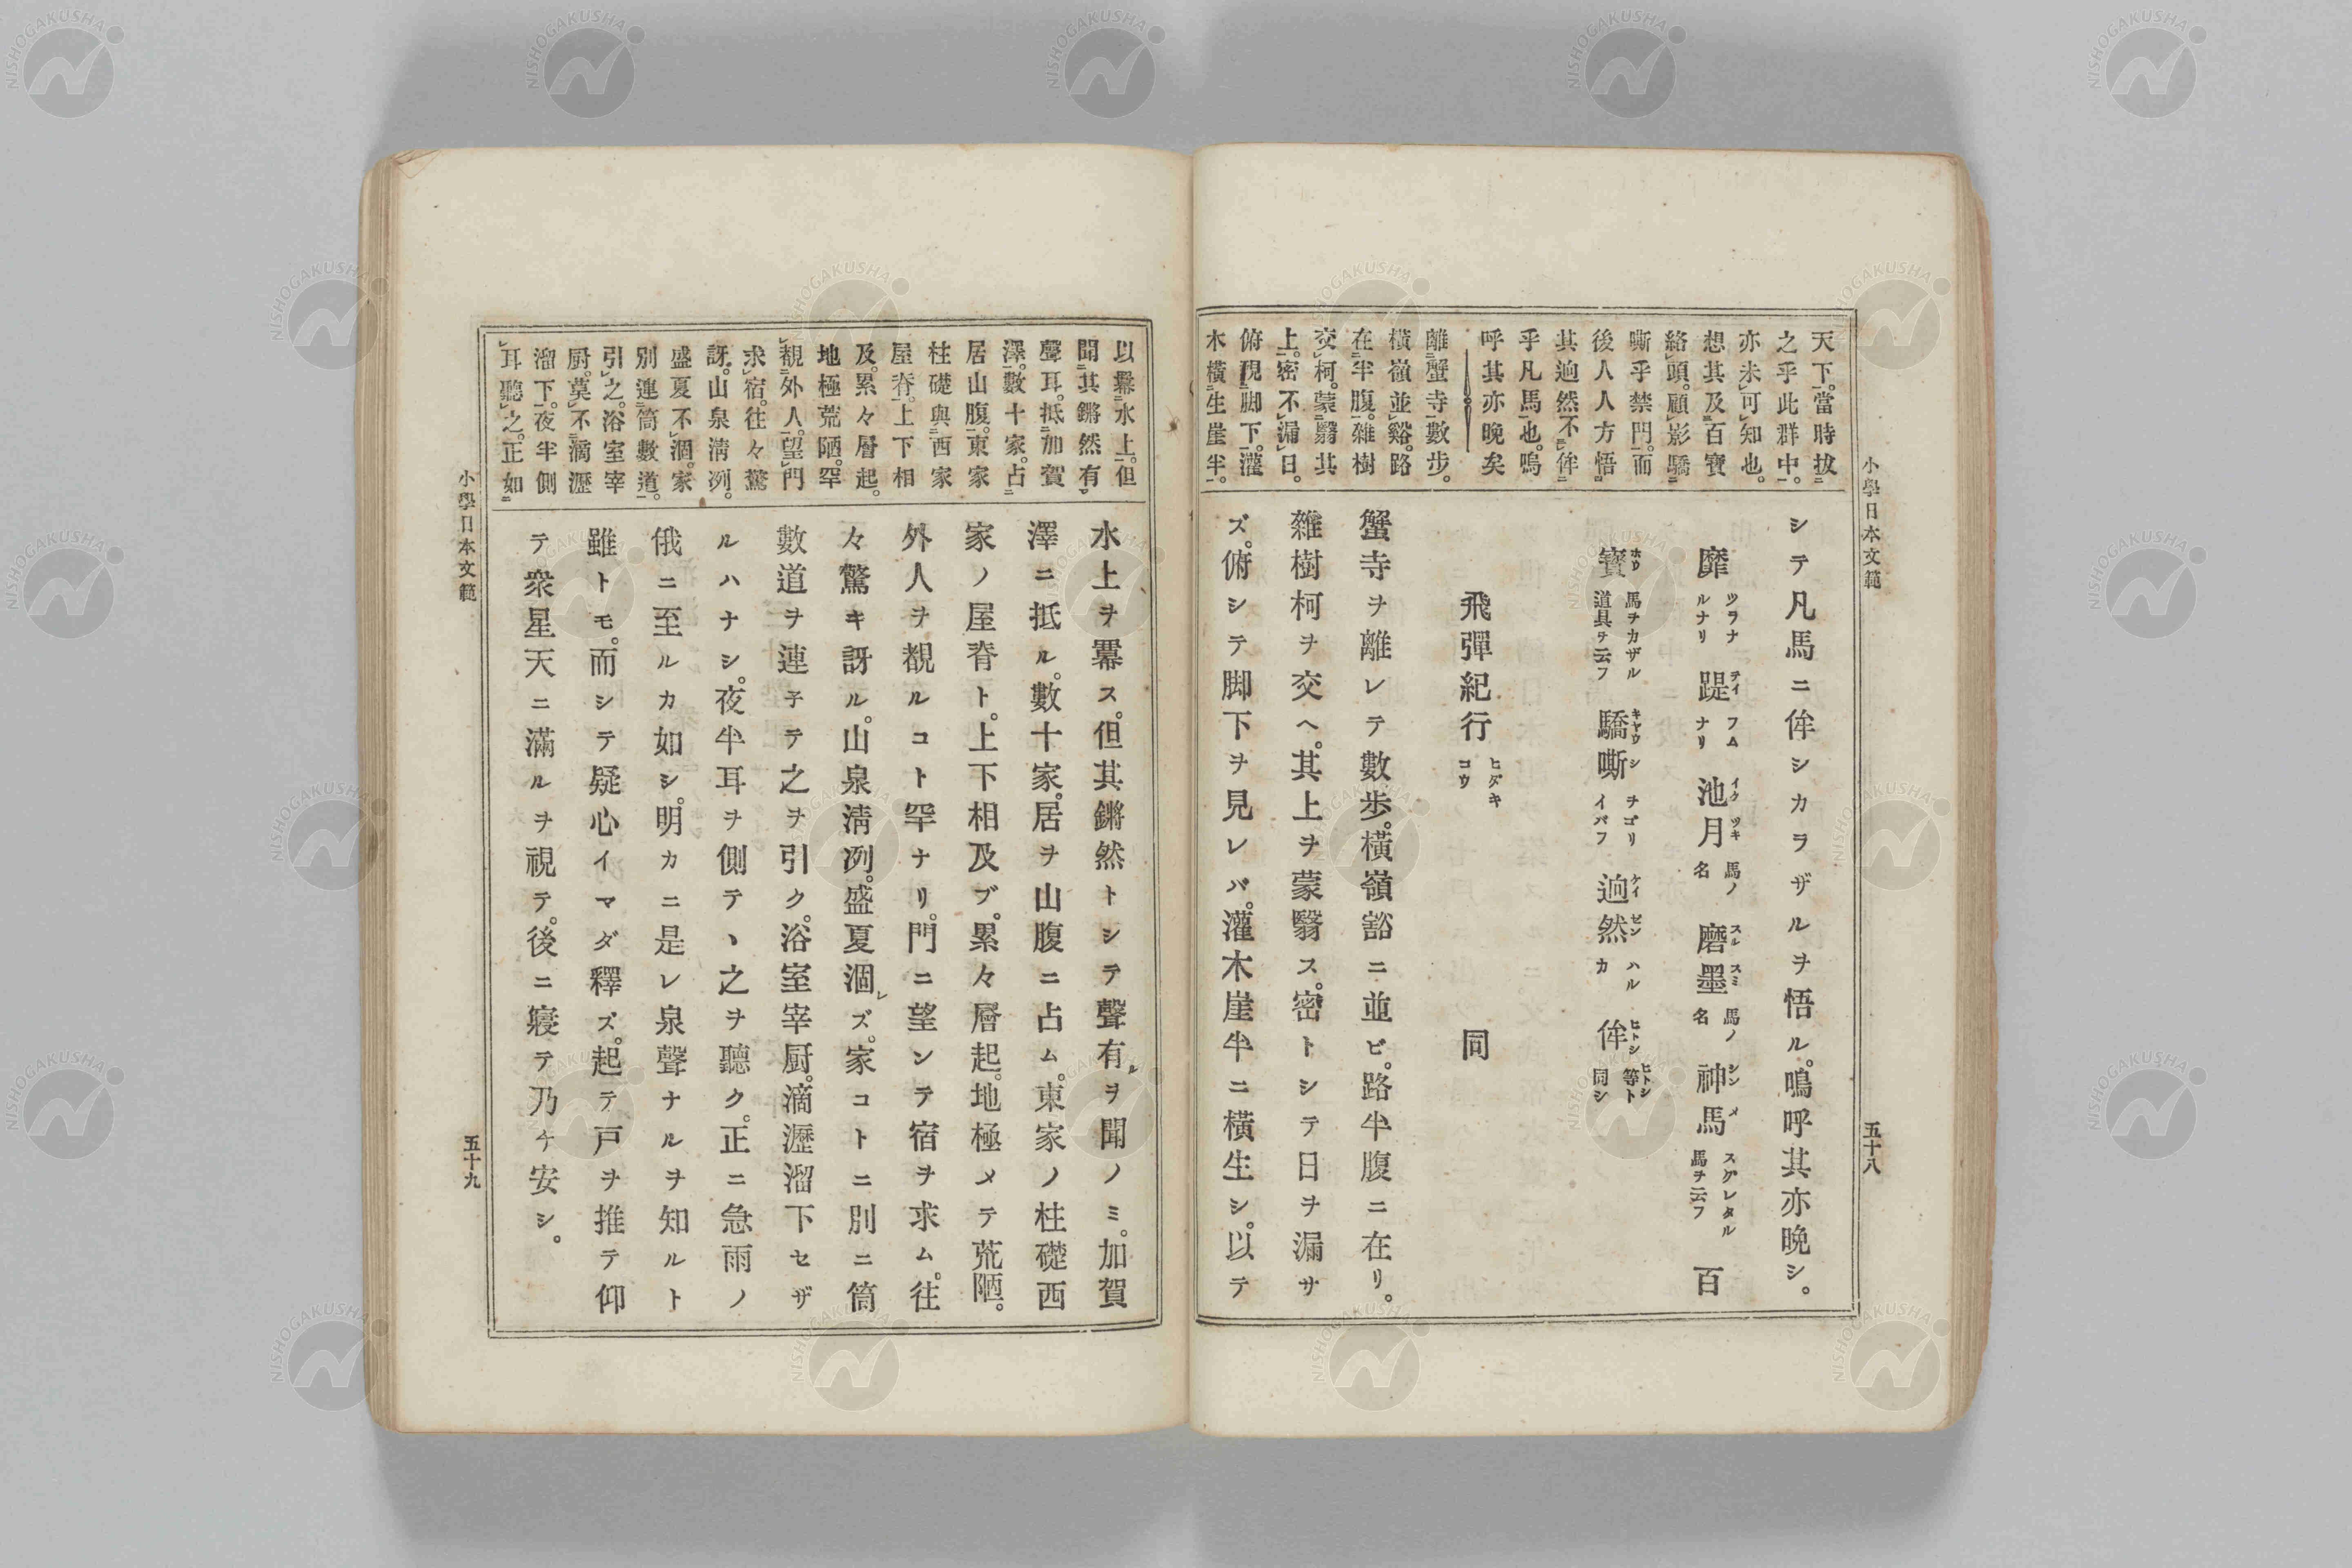 小學日本文範
五十八
天下。當時拔
之乎此群中。
亦未可知也。
想其及百寶
絡頭。顧影驕
嘶乎禁門。而
後人人方悟
其逈然不侔
乎凡馬也。嗚
呼其亦晩矣
離蟹寺數步。
橫嶺並谿。路
在半腹。雜樹
交柯。蒙翳其
上。密不漏日。
俯視脚下。灌
木橫生崖半。
シテ凡馬ニ侔シカラザルヲ悟ル。嗚呼其亦晩シ。
靡ツラナルナリ 踶テイ フムナリ 池月イクツキ 馬ノ名 磨墨スルスミ 馬ノ名 神馬シンメ スグレタル馬ヲ云フ 百
寶ホウ 馬ヲカザル道具ヲ云フ 驕嘶キヤウシ ヲゴリイバフ 逈然ケイゼン ハルカ 侔ヒトシ 等ヒトシト同シ
飛彈紀行ヒダキコウ 同
蟹寺ヲ離レテ數步。橫嶺谿ニ並ビ。路半腹ニ在リ。
雜樹柯ヲ交ヘ。其上ヲ蒙翳ス。密トシテ日ヲ漏サ
ズ。俯シテ脚下ヲ見レバ。灌木崖半ニ橫生シ。以テ
以羃水上。但
聞其鏘然有
聲耳。抵加賀
澤。數十家。占
居山腹。東家
柱礎與西家
屋脊。上下相
及。累々層起。
地極荒陋。罕
覩外人。望門
求宿。往々驚
訝。山泉淸冽。
盛夏不涸。家
別連筒數道。
引之。浴室宰
厨。莫不滴瀝
溜下。夜半側
耳聽之。正如
水上ヲ羃ス。但其鏘然トシテ聲有ルヲ聞ノミ。加賀
澤ニ抵ル。數十家。居ヲ山腹ニ占ム。東家ノ柱礎西
家ノ屋脊ト。上下相及ブ。累々層起。地極メテ荒陋。
外人ヲ覩ルコト罕ナリ。門ニ望ンテ宿ヲ求ム。往
々驚キ訝ル。山泉淸冽。盛夏涸レズ。家コトニ別ニ筒
數道ヲ連子テ之ヲ引ク。浴室宰厨。滴瀝溜下セザ
ルハナシ。夜半耳ヲ側テヽ之ヲ聽ク。正ニ急雨ノ
俄ニ至ルカ如シ。明カニ是レ泉聲ナルヲ知ルト
雖トモ。而シテ疑心イマダ釋ズ。起テ戸ヲ推テ仰
テ衆星天ニ滿ルヲ視テ。後ニ寢テ乃ケ安シ。
小學日本文範
五十九